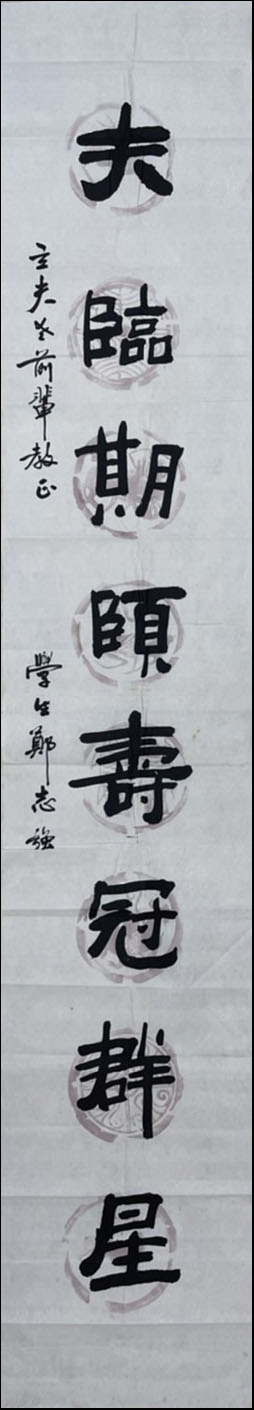 夫臨期頤壽冠群星
立夫公前輩教正
學生鄭志強